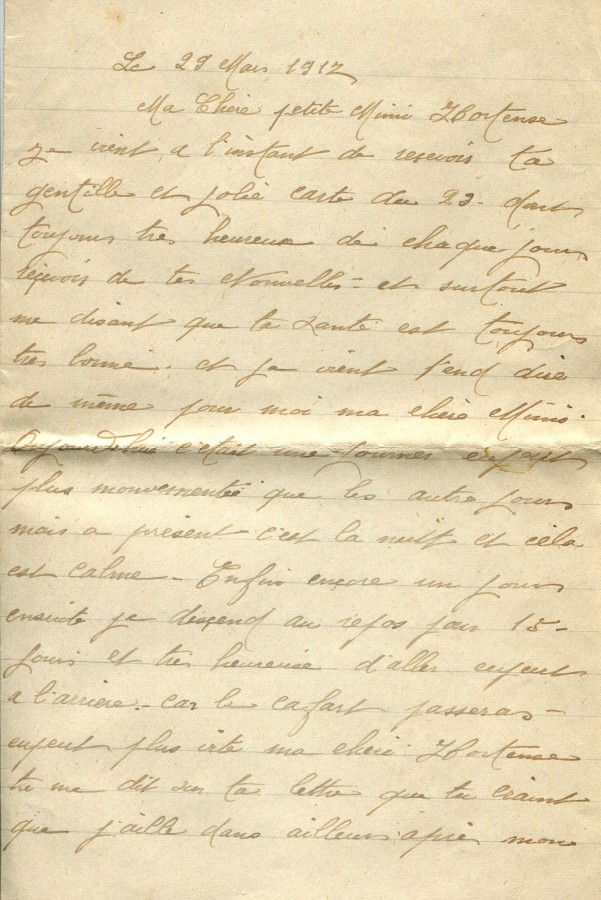 Le 29 Mars 1917
Ma Chère petite Mimi Hortense
je vient a l'instant de resevoir ta
gentille et jolie carte du 23. dont
toujours tres heureux de chaque jours
reçevois de tes Nouvelles - et surtout
me disant que ta santé est toujours
très bonne. et je vient t'end dire
de même pour moi ma chère Mimi.
Aujourd'hui c'etait une journee un peut
plus mouvementée que les autre jours
mais a présent c'est la nuit et cela
est calme - Enfin encore un jours
ensuite je desçend au repos pour 15-
jours et tres heureuse d'aller un peut
a l'arrière - car le cafart passeras -
un peut plus vite ma chère Hortense
tu me dit sur ta lettre que tu craint
que j'aille dans ailleurs après mon